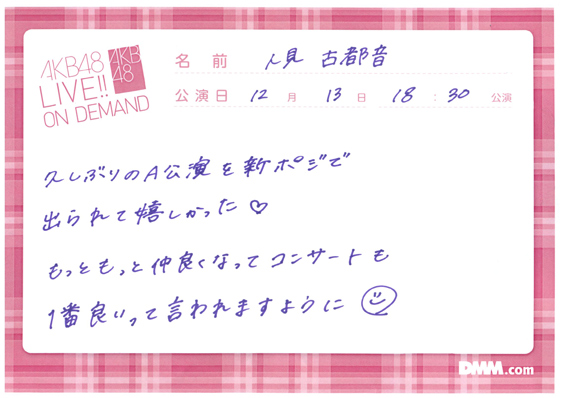 AKB48
LIVE!!
ON DEMAND
AKB
48
名前 人見 古都音
公演日 12 月 13 日 18 : 30 公演
久しぶりのA公演を新ポジで
出られて嬉しかった♡
もっともっと仲良くなってコンサートも
1番良いって言われますように☺
DMM.com